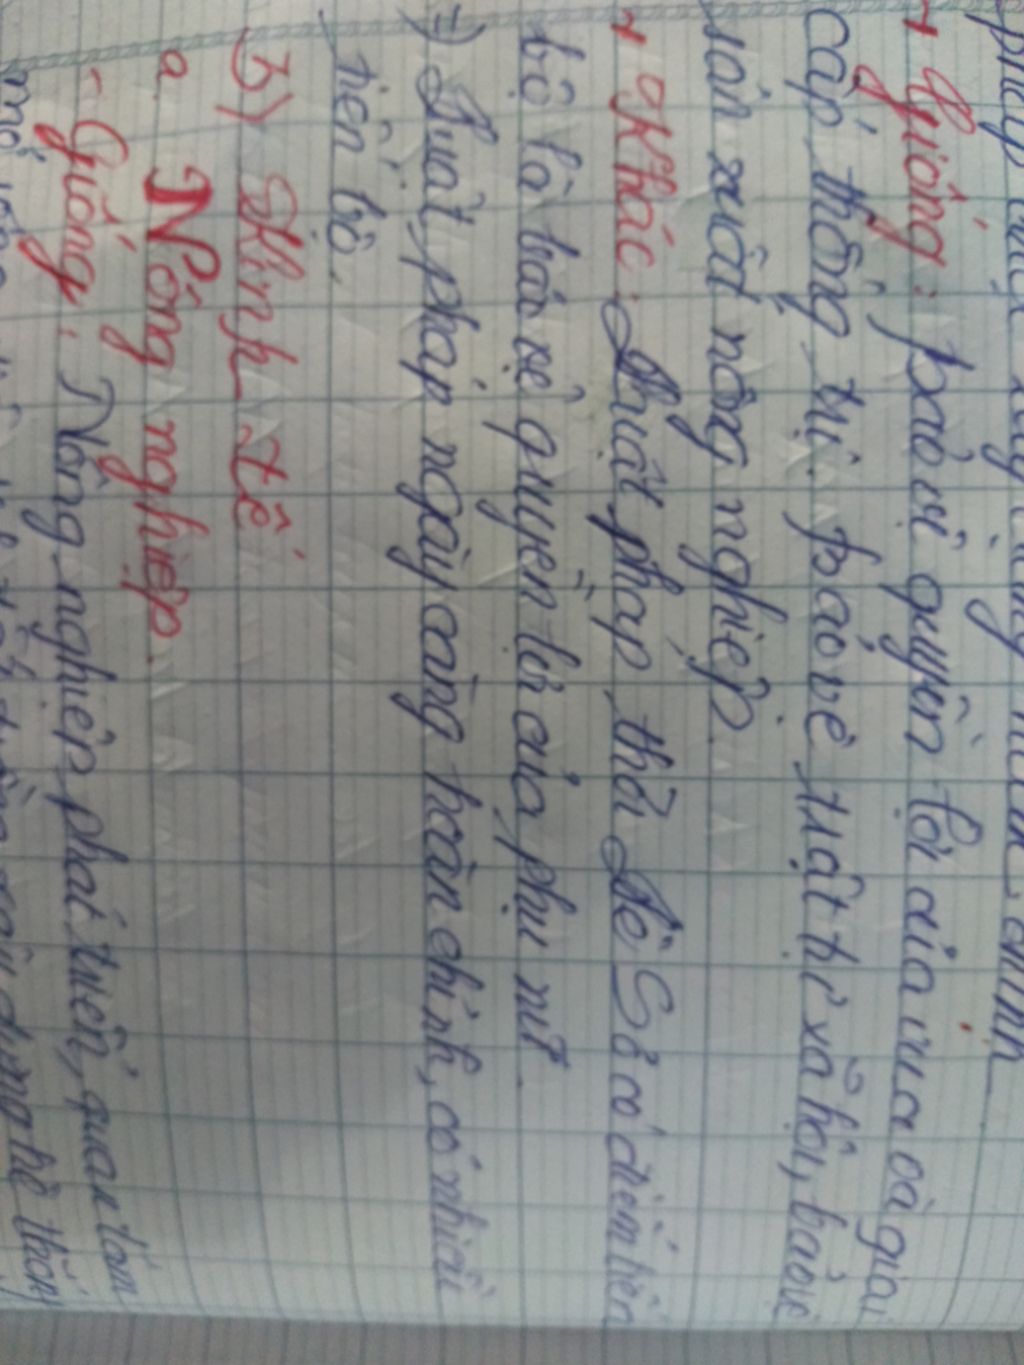 + Giống: bảo vệ quyền lợi của vua và giai
cấp thống trị. bảo vệ trật tự xã hội, bảo vệ
sản xuất nông nghiệp.
+ Khác: Luật pháp thời Lê Sơ có điểm tiến
bộ là bảo vệ quyền lợi của phụ nữ.
=> Luật pháp ngày càng hoàn chỉnh, có nhiều
tiến bộ.
3) Kinh tế
a. Nông nghiệp.
- Giống: Nông nghiệp phát triển, quan tâm